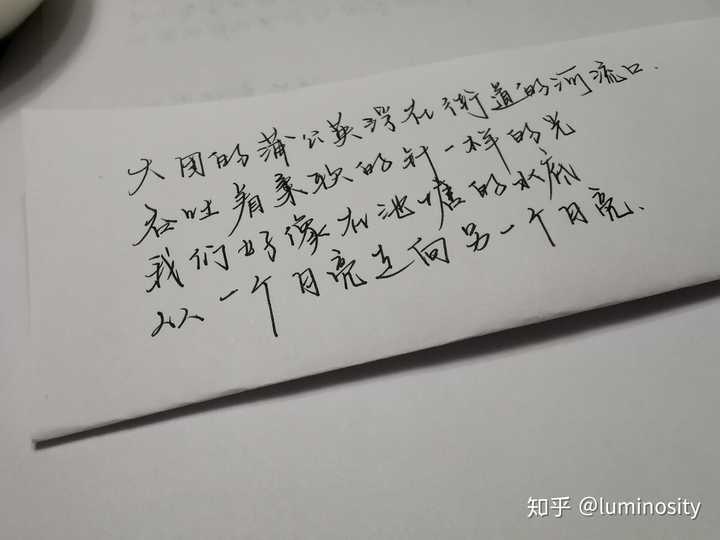 大团的蒲公英浮在街道的河流口.
吞吐着柔软的针一样的光
我们好像在池塘的水底
从一个月亮走向另一个月亮.
知乎 @luminosity